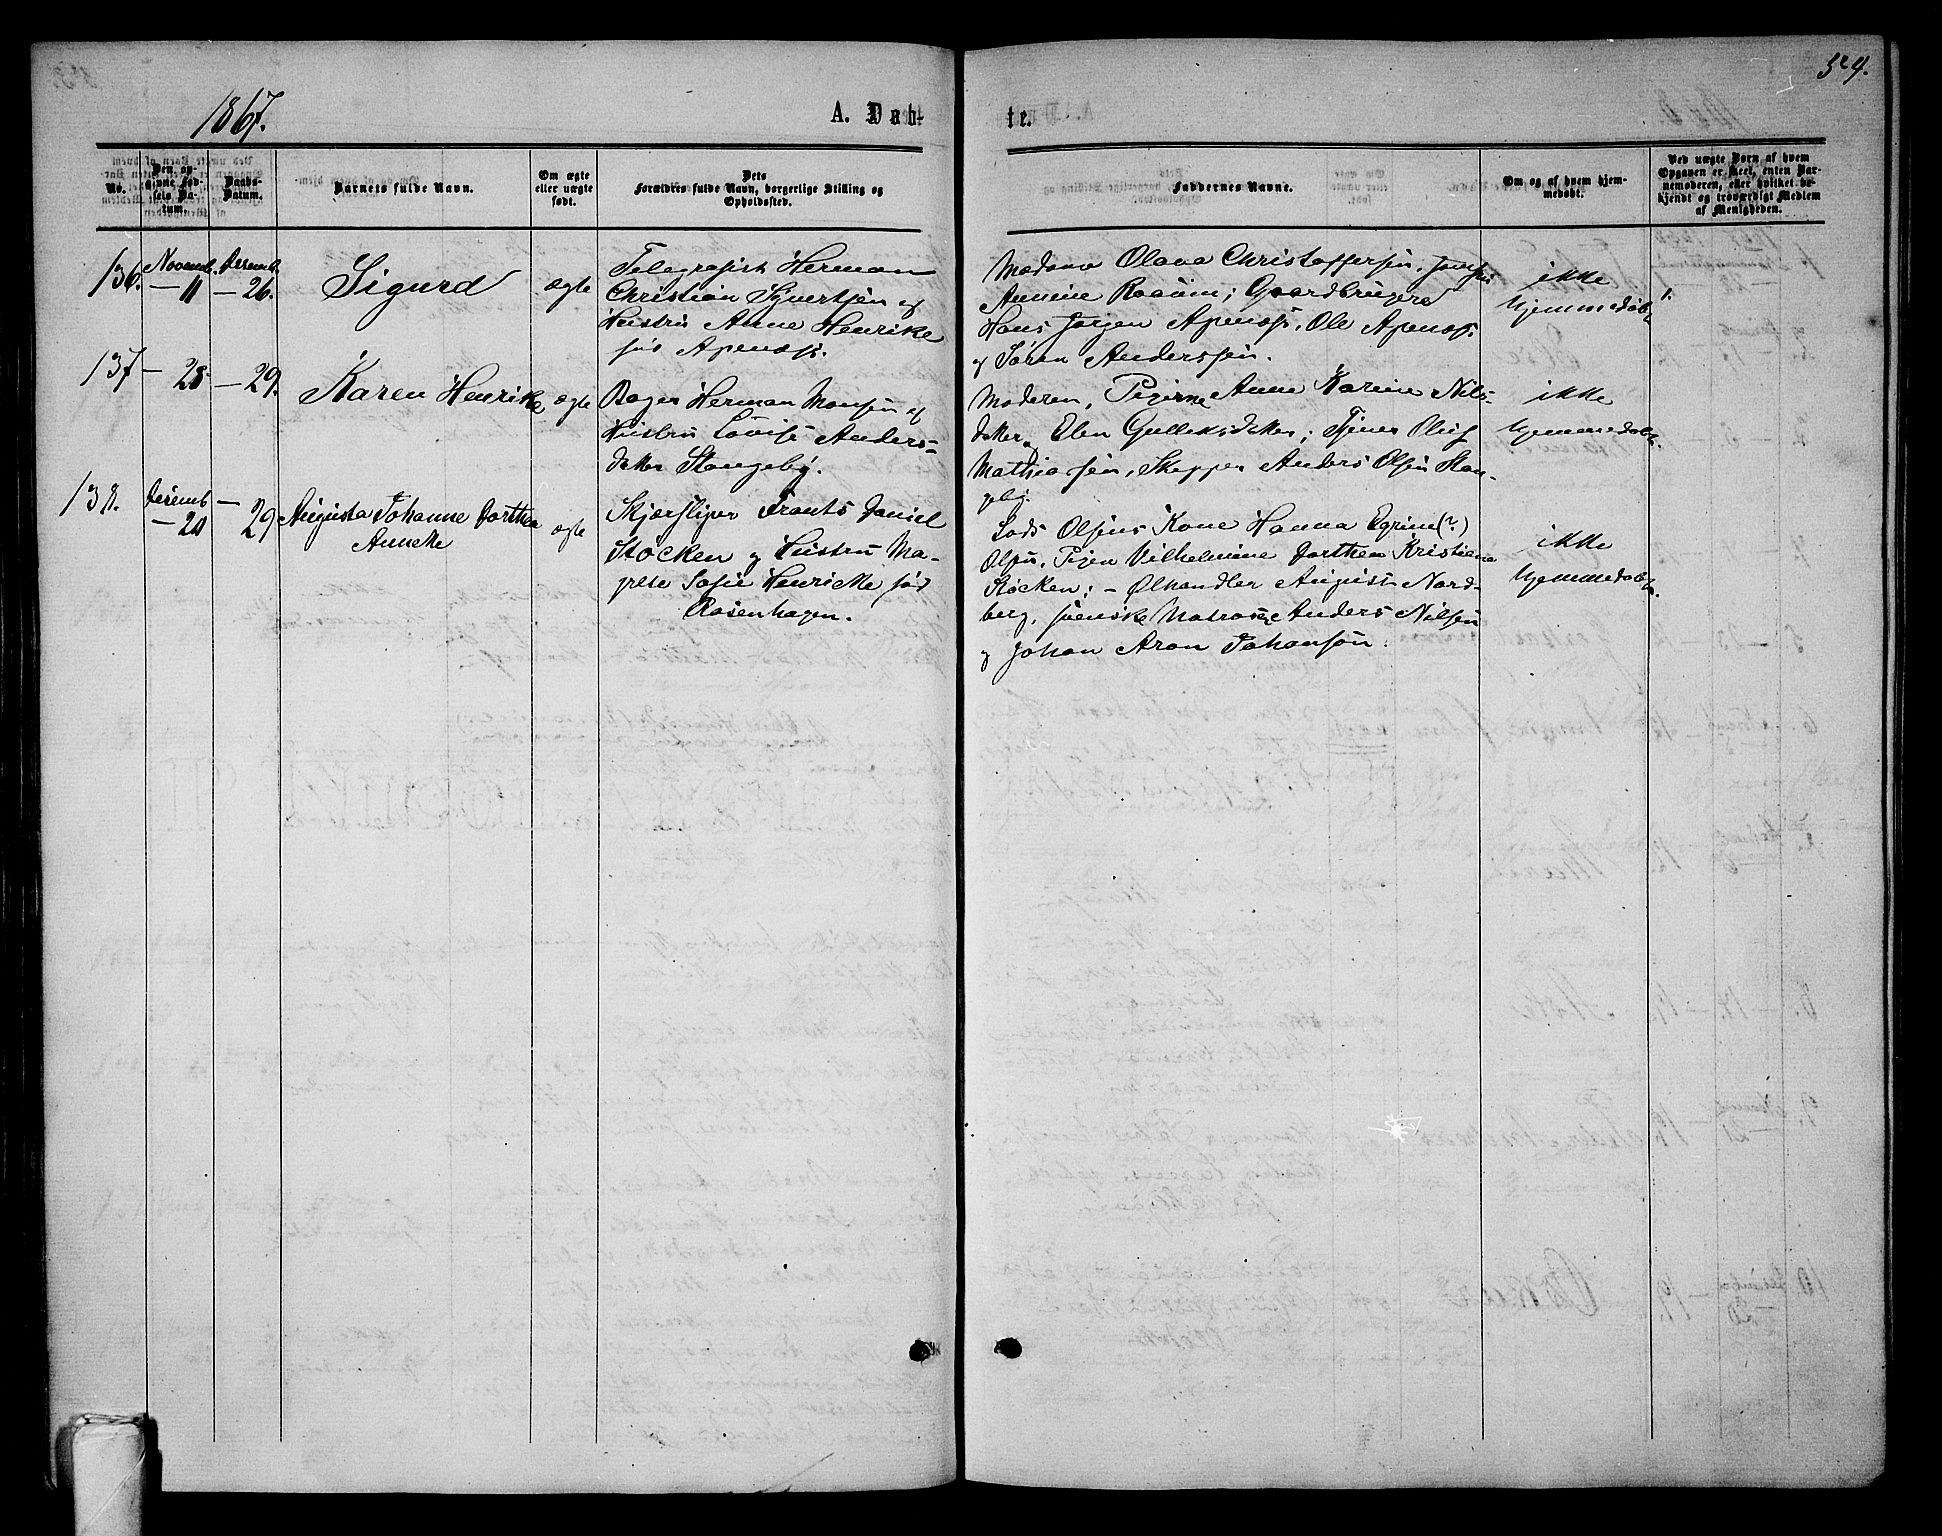 324.
1867.
A. Døb-
te.
No.
Den opgivne Fødsels Datum.
Daabs-Datum.
Barnets fulde Navn.
Om ægte eller uægte født.
Dets Forældres fulde Navn, borgerlige Stilling og Opholdssted.
Faddernes Navne.
Om og af hvem hjemmedøbt.
Ved uægte Børn af hvem Opgaven er skeet, enten Barnemoderen, eller hvilket bekjendt og troværdigt Medlem af Menigheden.
136. Novemb. - 11 Decemb. - 26. Sigurd ægte
Telegrafist Herman
Christian Syvertsen og
Hustru Anne Henrike
fød Apenæss.
Madame Olava Christoffersen,
Annine Raaum; Gaardbrugere
Hans Jørgen Apenæss, Ole Apenæss
og Søren Anderssen.
ikke
hjemmedøbt
1.
137 - 28 - 29. Karen Henrike ægte
Bager Herman Monsen og
Hustru Lovise Anders-
datter Stangeby.
Moderen, Pigerne Anne Karine Nils-
datter, Elen Gulleksdatter; Tjener Oluf
Mathiassen, Skipper Anders Olsen Stan-
geby.
ikke
hjemmedøbt.
138. Decemb - 20 - 29 Augusta Johanne Dorthea
Annette
ægte
Skjærsliper Frants Daniel
Støcken og Hustru Ma-
grete Sofie Henricke fød
Rosenhagen.
Lods Olsens Kone Hanna Egrine(?)
Olsen, Pigen Vilhelmine Dorthea Kristiane
Støcken; - Ølhandler August Nord-
berg, svenske Matroser Anders Nilsen
og Johan Aron Johanson.
ikke
hjemmedøbt.